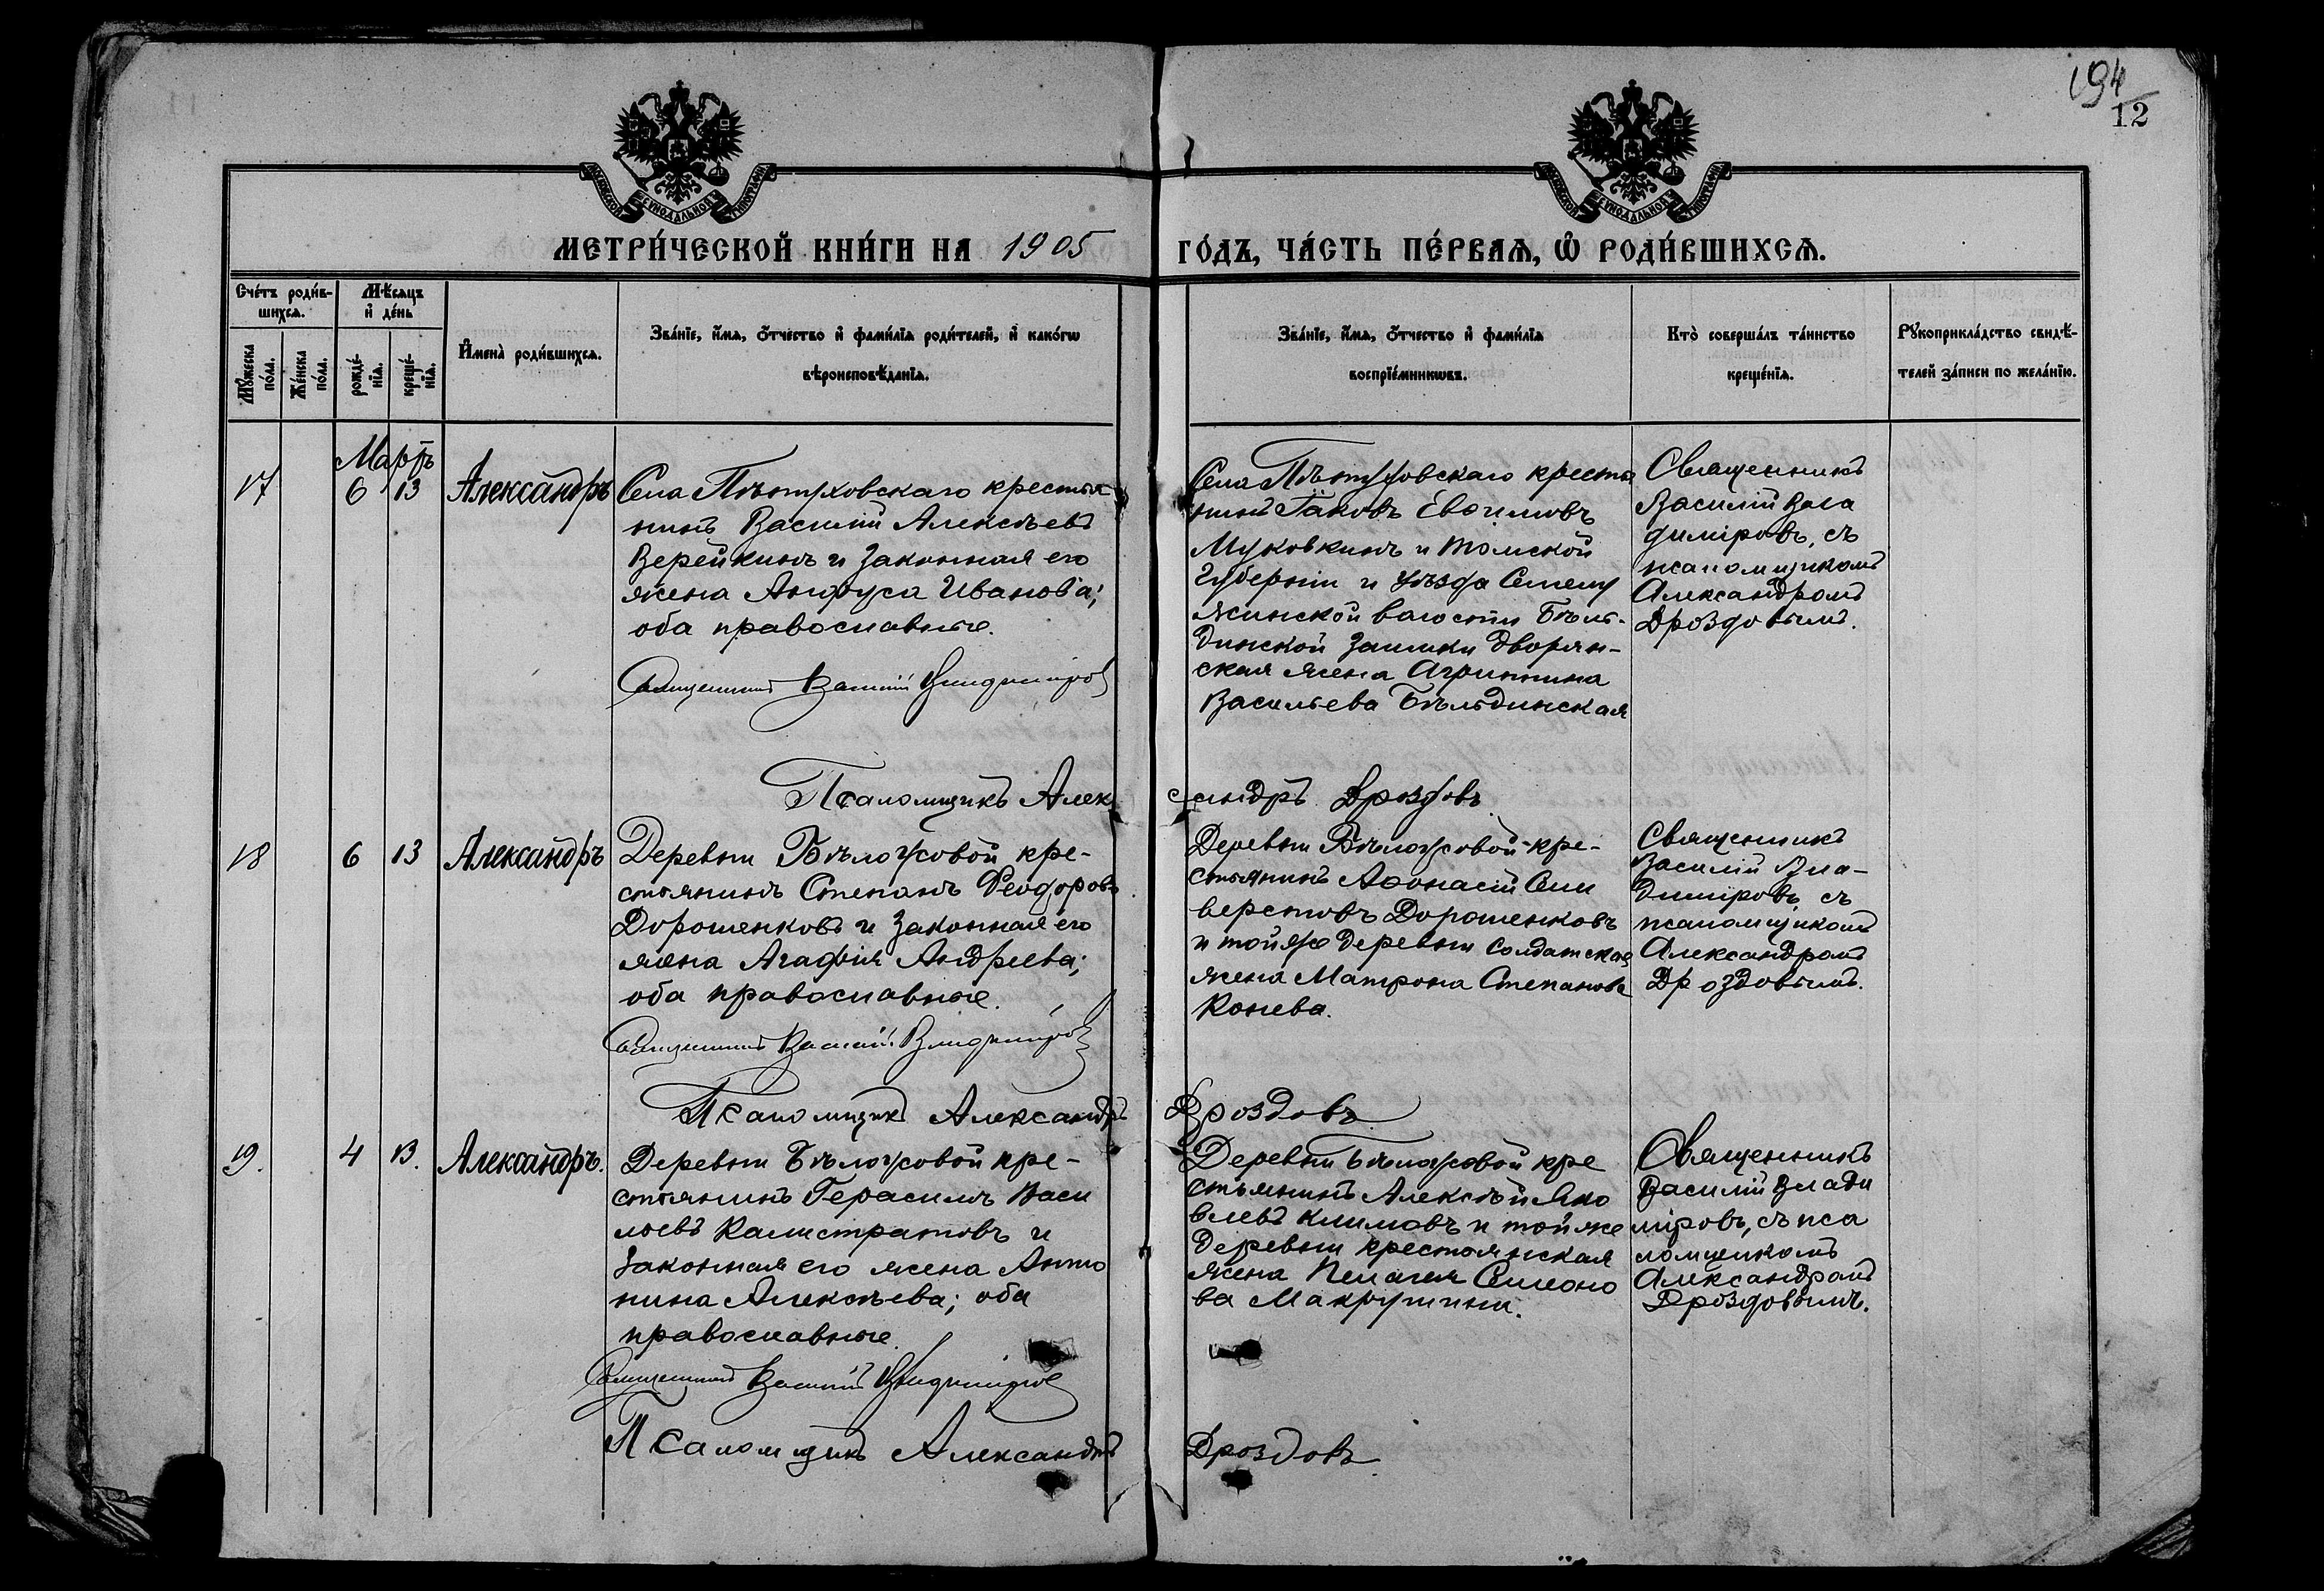 194
12
МЕТРИ́ЧЕСКОЙ КНИ́ГИ НА 1905 ГО́ДЪ, ЧА́СТЬ ПЕ́РВАѦ, Ѡ РОДИ́ВШИХСѦ.
Сче́тъ роди́в-
шихсѧ.
Мѣ́сѧцъ
и де́нь
Мꙋ́жеска
по́ла.
Же́нска
по́ла.
рожде́-
нїѧ.
креще́-
нїѧ.
Имена̀ роди́вшихсѧ.
Зва́нїе, и́мѧ, о́тчество и фами́лїѧ роди́телей, и како́гѡ
вѣроисповѣ́данїѧ.
Зва́нїе, и́мѧ, о́тчество и фами́лїѧ
воспрїе́мникѡвъ.
Кто̀ соверша́лъ та́инство
креще́нїѧ.
Рꙋкоприкла́дство свидѣ́-
телей за́писи по жела́нїю.
Мартъ
17 6 13 Александръ
Села Пѣтуховскаго крестья
нинъ Василій Алексѣевъ
Верейкинъ и законная его
жена Анфуса Иванова;
оба православные.
Священникъ Василій Владиміров
Села Пѣтуховскаго крестья
нинъ Іаковъ Евѳимовъ
Муковкинъ и Томской
Губерніи и уѣзда Семилу
жинской волости Бѣль-
динской заимки дворян-
ская жена Агрипина
Васильева Бѣльдинская
Священникъ
Василій Вла
диміровъ, съ
псаломщикомъ
Александромъ
Дроздовымъ.
Псаломщикъ Алек сандръ Дроздовъ
18 6 13 Александръ
Деревни Бѣлоусовой кре-
стьянинъ Степанъ Феодоровъ
Дорошенковъ и законная его
жена Агафія Андреева;
оба православные.
Священникъ Василій Владиміров
Деревни Бѣлоусовой кре-
стьянинъ Аѳонасій Сели
верстовъ Дорошенковъ
и той же деревни солдатская
жена Матрона Степанова
Конева.
Священникъ
Василій Вла-
диміровъ съ
псаломщикомъ
Александромъ
Дроздовымъ.
Псаломщикъ Александръ Дроздовъ
19. 4 13. Александръ.
Деревни Бѣлоусовой кре-
стьянинъ Герасимъ Васи
льевъ Калистратовъ и
законная его жена Анто
нина Алексѣева; оба
православные.
Священникъ Василій Владиміров
Деревни Бѣлоусовой кре
стьянинъ Алексѣй Яко
влевъ Климовъ и той же
деревни крестьянская
жена Пелагея Симеоно
ва
Священникъ
Василій Влади
міровъ, съ пса
ломщикомъ
Александромъ
Дроздовымъ.
Псаломщикъ Александръ Дроздовъ